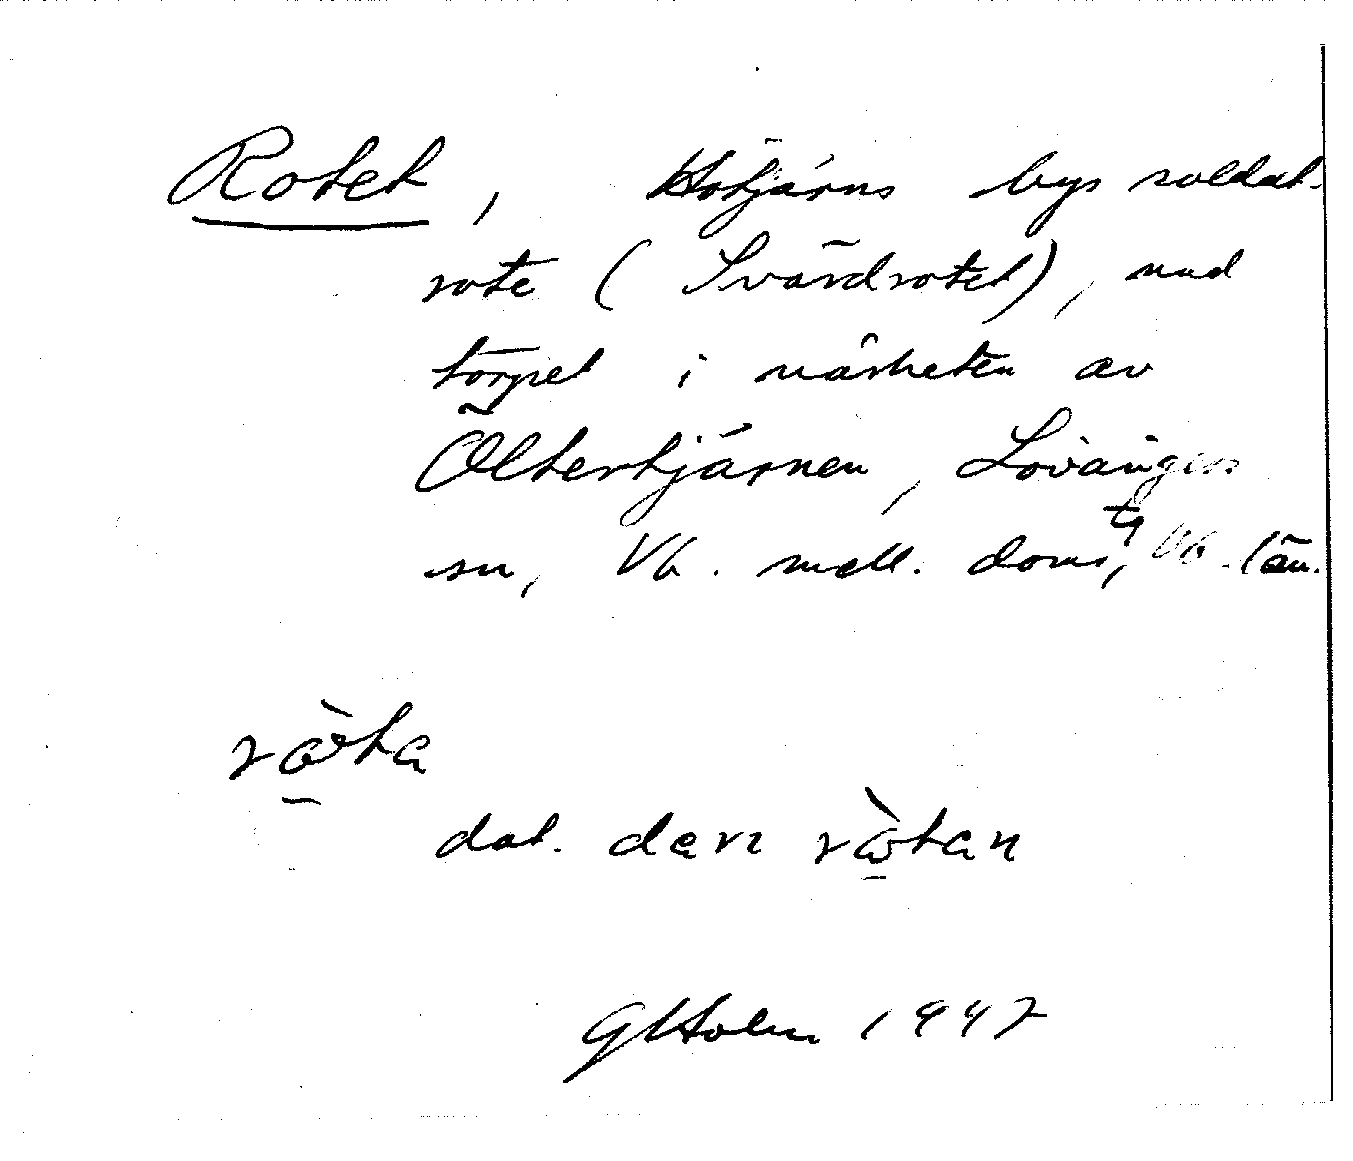 Rotet, Hötjärns bys soldat-
rote (Svärdrotet), med
torpet i närheten av
Öltertjärnen, Lövångers
sn, Vb. mell. doms, tg Vb. län.
ròta
dat. den ròtan
G Holm 1947